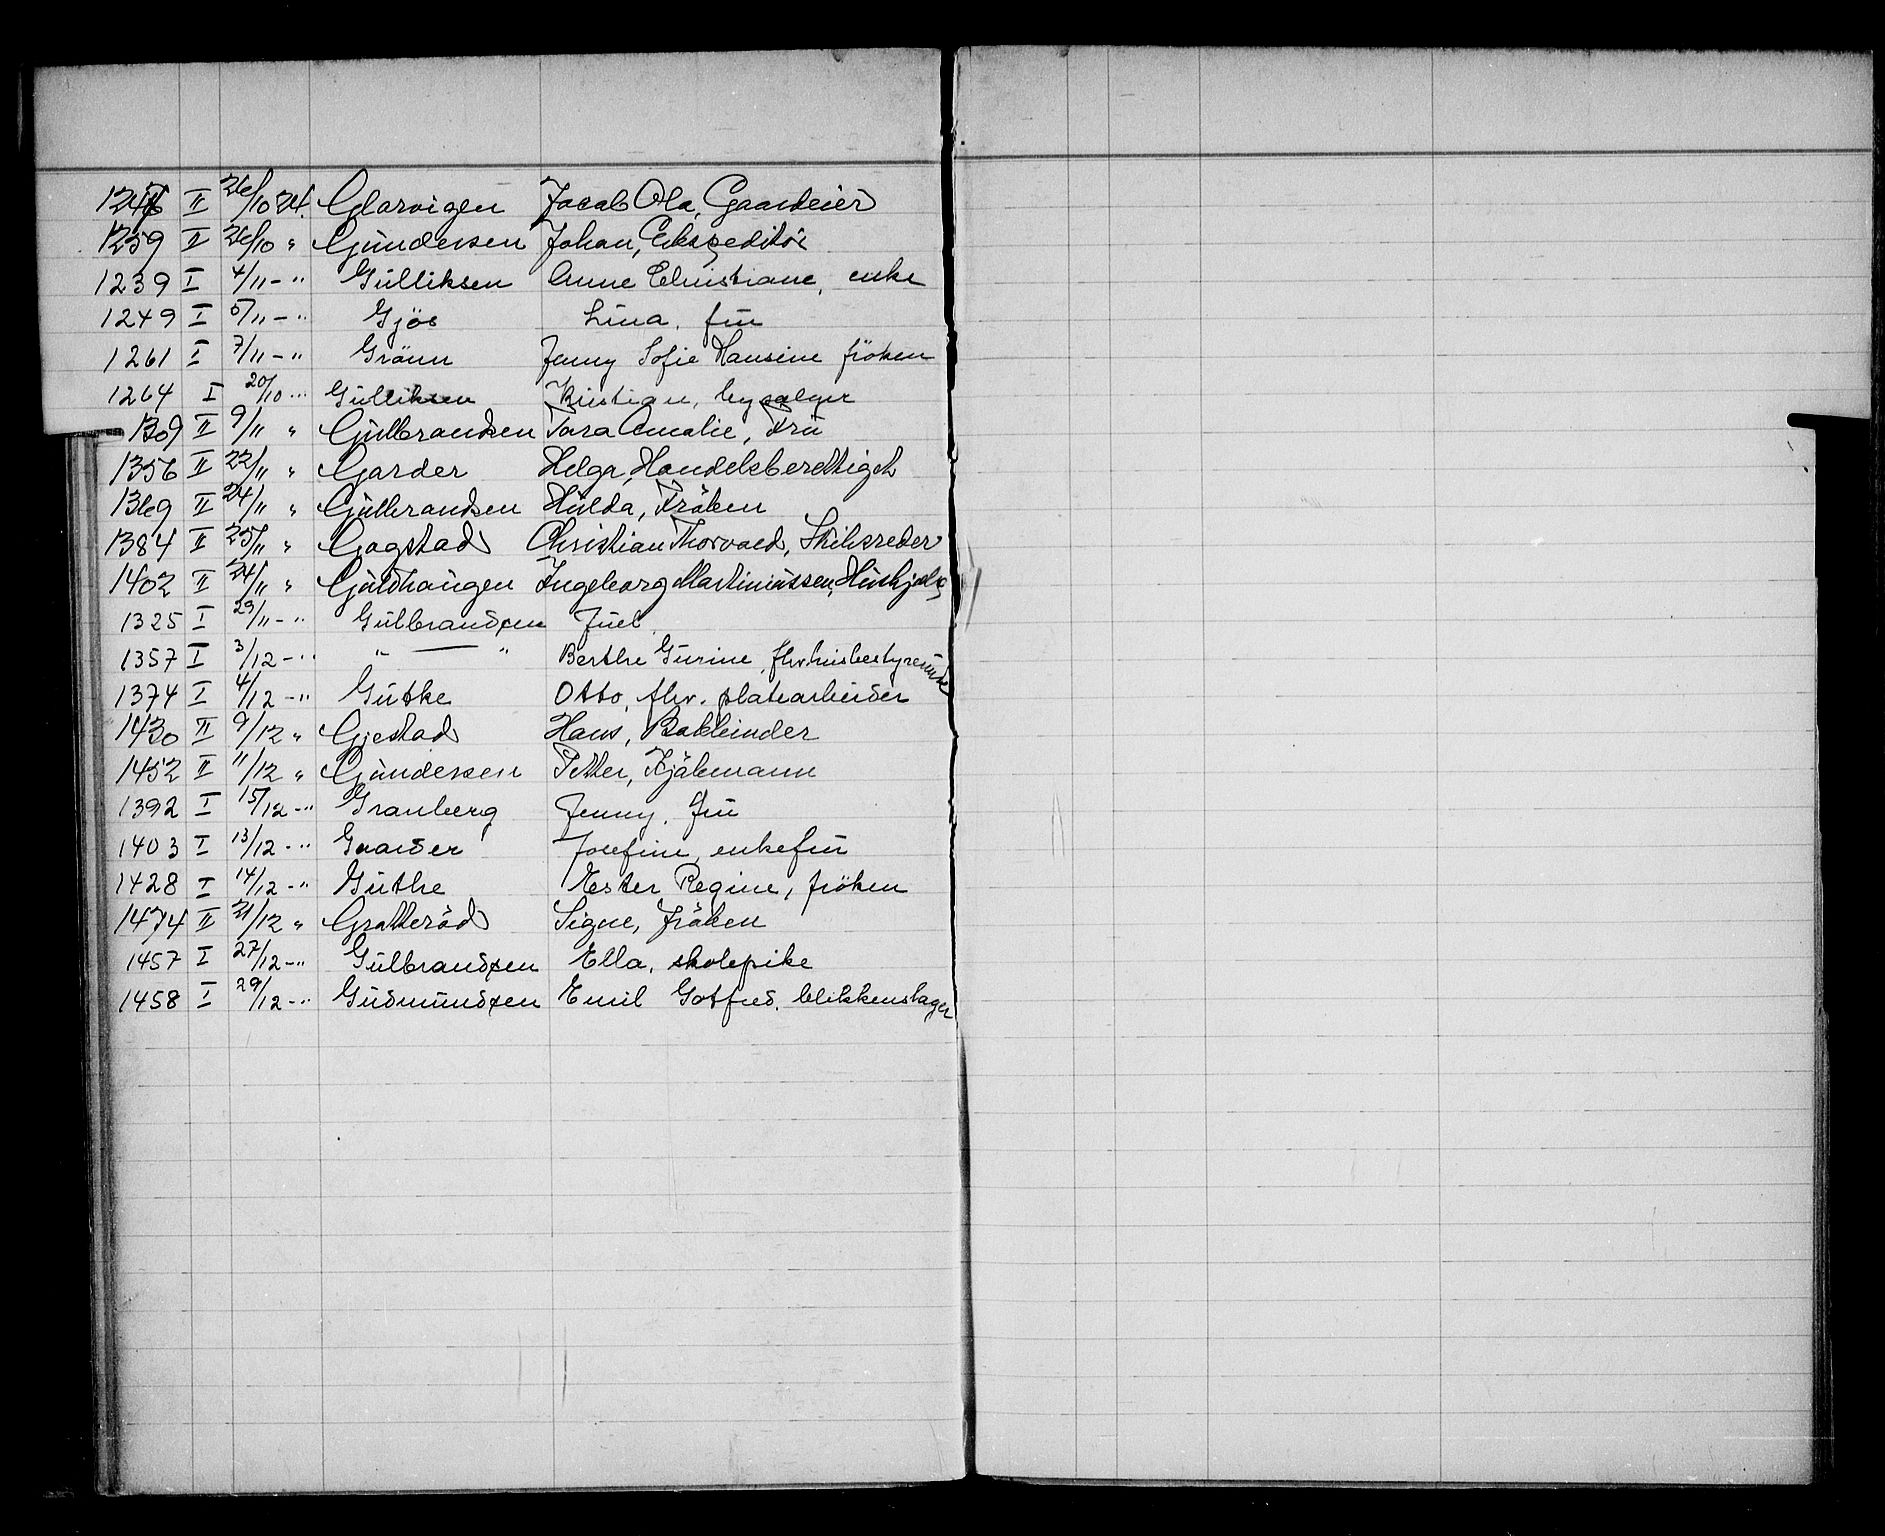 II 26/10 24. Glorvigen Jacob Ola, Gaardeier
1259 II 26/10 " Gundersen Johan, Ekspeditör
1239 I 4/11 - " Gulliksen Anne Christiane, enke
1249 I 5/11 - " Gjös Lina, fru
1261 I 7/11 - " Grönn Jenny Sofie Hansine fröken
1264 I 20/10 - " Gulliksen Kristian, bygselger
1309 II 9/11 " Gulbrandsen Tora Amalie, Fru
1356 II 22/11 " Garder Helga, Handelsberettiget
1369 II 24/11 " Gulbrandsen Hulda, Fröken
1384 II 25/11 " Gogstad Christian Thorvald, Skibsreder
1402 II 24/11 " Guldhaugen Ingeborg Martiniussen, Hushjælp
1325 I 29/11 - " Gulbrandsen Juel
1357 I 3/12 - " " — " Berthe Gurine, fhv. husbestyrerinde
1374 I 4/12 - " Gutke Otto, fhv. platearbeider
1430 II 9/12 " Gjestad Hans, Bokbinder
1452 II 11/12 " Gundersen Petter, Kjömann
1392 I 15/12 - " Granberg Jenny, fru
1403 I 13/12 - " Gaarder Josefine, enkefru
1428 I 14/12 - " Guthe Ester Regine, fröken
1474 II 21/12 " Gratteröd Signe, Fröken
1457 I 27/12 - " Gulbrandsen Ella, skolepike
1458 I 29/12 - " Gudmundsen Emil Gotfred, blikkenslager